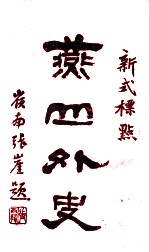 新式標點
燕山外史
嶺南張崖題